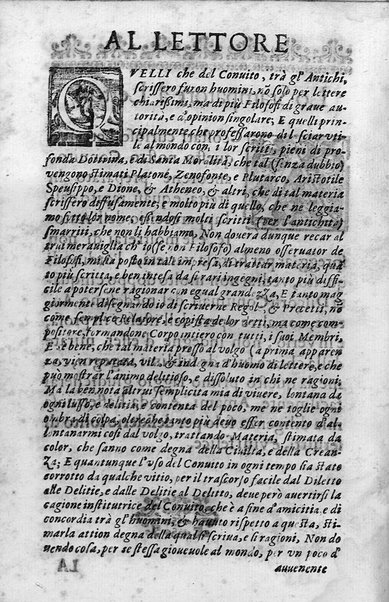 AL LETTORE
QVELLI che del Conuito, trà gl' Antichi,
scrissero furon huomini, nō solo per lettere
chiarissimi, ma di più Filosofi di graue au
torità, e d'opinion singolare, E quelli prin
cipalmente che professarono di lasciar vti
le al mondo con, i lor scritti, pieni di pro-
fonda Dottrina, e di Santa Moralità, che tal (senza dubbio)
vengono stimati Platone, Zenofonte, e Plutarco, Aristotile
Speusippo, e Dione, & Atheneo, & altri, che di tal materia
scrissero diffusamente, e molto più di quello, che ne leggia-
mo sotto lor nome, essendosi molti scritti (per l'antichità)
smarriti, che non li habbiamo. Non douerà dunque recar al
trui merauiglia ch' io (se non Filosofo) almeno osseruator de
Filosofi, mi sia posto in tal impresa, di trattar materia, quā
to più scritta, e ben intesa da si rari ingegni, tanto più diffi-
cile a poterse ragionar con egual grandezza, E tanto mag
giormente disegnando io di scriuerne Regole, & Precetti, nō
come, semplice Relatore, e copista de lor detti, ma come com-
positore, formandone Corpo intiero con tutti, i suoi Membri.
E se bene, che tal materia presso al volgo (a prima apparen
za, vien reputata, vil, & indegna d'huomo di lettere, e che
può mostrar l'animo delitioso, e dissoluto in chi ne ragioni;
Ma la ben nota altrui semplicità mia di viuere, lontana da
ogni lusso, e delitia, e contenta del poco, me ne toglie ogni
ombra di colpa, oltre che tanto più deuo esser contento d'al-
lontanarmi così dal volgo, trattando Materia, stimata da
color, che sanno come degna della Ciuiltà, e della Crean-
za; E quantunque l'vso del Conuito in ogni tempo sia stato
corrotto da qualche vitio, per il trascorso facile dal Diletto
alle Delitie, e dalle Delitie al Delitto, deue però auertirsi la
cagione institutrice del Conuito, che è a fine d'amicitia e di
concordia trà gl' huomini, & hauuto rispetto a questa, sti-
marla attion degna della qual si scriua, e si ragioni. Non do
nendo cosa, per se stessa gioueuole al mondo, per vn poco d'
auuenente
LA